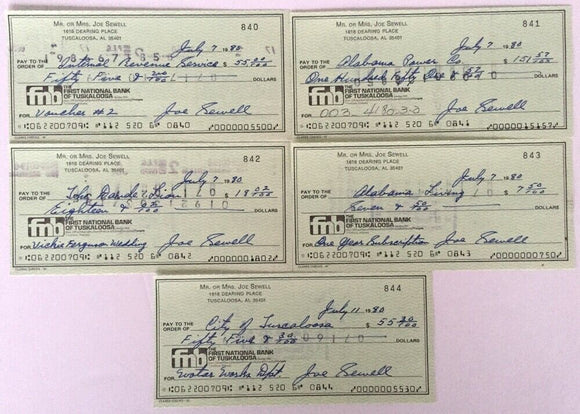 MR. OR MRS. JOE SEWELL 840
1618 DEARING PLACE
TUSCALOOSA, AL 35401
July 7 1980
PAY TO THE
ORDER OF Internal Revenue Service $ 55 00/100
Fifty Five & 00/100 DOLLARS
fnb THE
FIRST NATIONAL BANK
OF TUSKALOOSA
FOR Voucher #2 Joe Sewell
⑆062200709⑆ ⑈112 520 6⑈ 0840 ⑈0000005500⑈
MR. OR MRS. JOE SEWELL 841
1618 DEARING PLACE
TUSCALOOSA, AL 35401
July 7 1980
PAY TO THE
ORDER OF Alabama Power Co $ 151 57/100
One Hundred Fifty One & 57/100 DOLLARS
fnb THE
FIRST NATIONAL BANK
OF TUSKALOOSA
FOR Joe Sewell
⑆062200709⑆ ⑈112 520 6⑈ 0841 ⑈0000015157⑈
MR. OR MRS. JOE SEWELL 842
1618 DEARING PLACE
TUSCALOOSA, AL 35401
July 7 1980
PAY TO THE
ORDER OF $ 18 02/100
Eighteen & 02/100 DOLLARS
fnb THE
FIRST NATIONAL BANK
OF TUSKALOOSA
FOR Vickie Ferguson Wedding Joe Sewell
⑆062200709⑆ ⑈112 520 6⑈ 0842 ⑈0000001802⑈
MR. OR MRS. JOE SEWELL 843
1618 DEARING PLACE
TUSCALOOSA, AL 35401
July 7 1980
PAY TO THE
ORDER OF Alabama Living $ 7 50/100
Seven & 50/100 DOLLARS
fnb THE
FIRST NATIONAL BANK
OF TUSKALOOSA
FOR One Year Subscription Joe Sewell
⑆062200709⑆ ⑈112 520 6⑈ 0843 ⑈0000000750⑈
MR. OR MRS. JOE SEWELL 844
1618 DEARING PLACE
TUSCALOOSA, AL 35401
July 11 1980
PAY TO THE
ORDER OF City of Tuscaloosa $ 55 30/100
Fifty Five & 30/100 DOLLARS
fnb THE
FIRST NATIONAL BANK
OF TUSKALOOSA
FOR Water Works Dept. Joe Sewell
⑆062200709⑆ ⑈112 520 6⑈ 0844 ⑈0000005530⑈